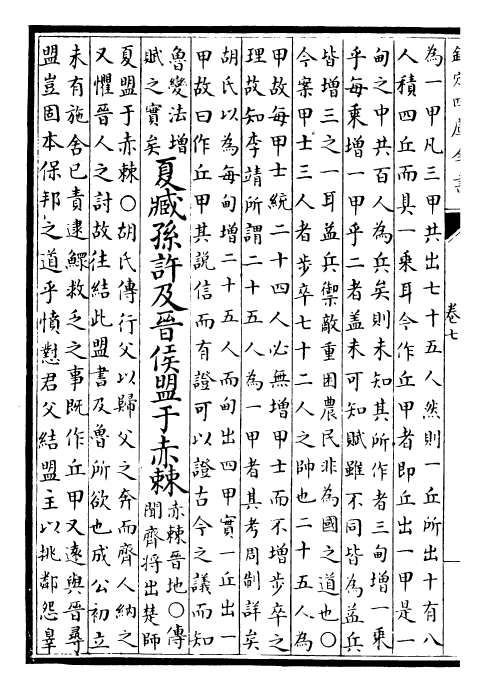 欽定四庫全書
卷七
為一甲凡三甲共出七十五人然則一丘所出十有八
人積四丘而具一乗耳今作丘甲者即丘出一甲是一
甸之中共百人為兵矣則未知其所作者三甸増一乗
乎每乗増一甲乎二者盖未可知賦雖不同皆為益兵
皆増三之一耳益兵禦敵重困農民非為國之道也〇
今案甲士三人者步卒七十二人之帥也二十五人為
甲故每甲士統二十四人必無増甲士而不増步卒之
理故知李靖所謂二十五人為一甲者其考周制詳矣
胡氏以為每甸増二十五人而甸出四甲實一丘出一
甲故曰作丘甲其說信而有證可以證古今之議而知
魯變法増
賦之實矣
夏臧孫許及晉侯盟于赤棘
赤棘晉地〇傳
聞齊將出楚師
夏盟于赤棘〇胡氏傳行父以歸父之奔而齊人納之
又懼晉人之討故往結此盟書及魯所欲也成公初立
未有施舍已責逮鰥救乏之事既作丘甲又遠與晉尋
盟豈固本保邦之道乎憤懟君父結盟主以挑鄰怨皐